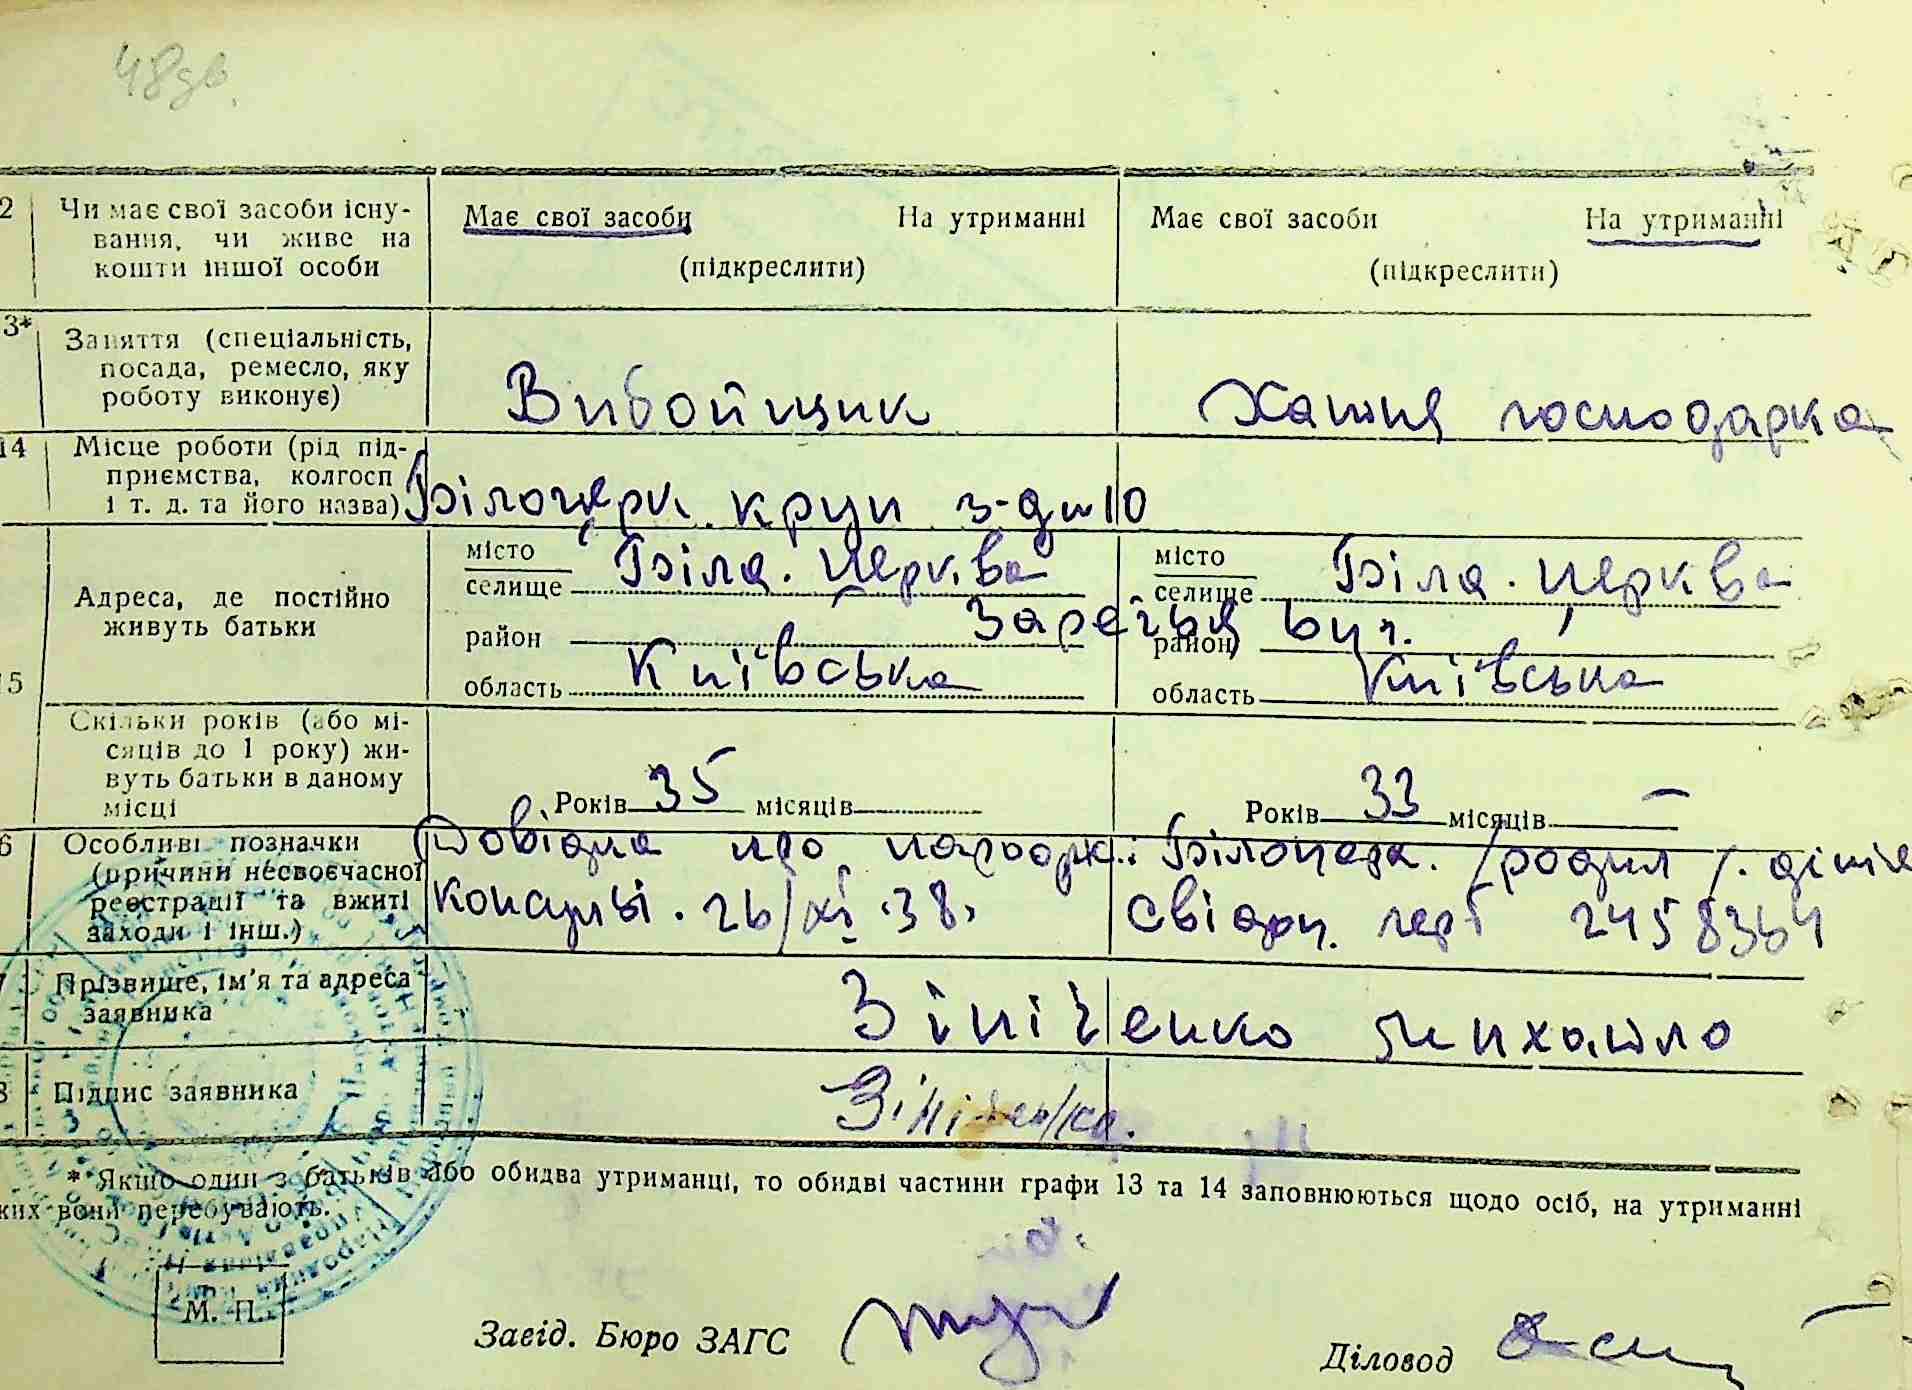 48зв.
2 Чи має свої засоби існу-
вання, чи живе на
кошти іншої особи
Має свої засоби На утриманні
(підкреслити)
Має свої засоби На утриманні
(підкреслити)
3* Заняття (спеціальність,
посада, ремесло, яку
роботу виконує)
Вибойщик
Хатня господарка
14 Місце роботи (рід під-
приємства, колгосп
і т. д. та його назва)
Білоцерк. круп з-д №10
15 Адреса, де постійно
живуть батьки
місто
селище Біла. Церква
район
область Київська
місто
селище Біла. Церква
район
область Київська
вул.
Скільки років (або мі-
сяців до 1 року) жи-
вуть батьки в даному
місці
Років 35 місяців
Років 33 місяців —
6 Особливі позначки
(причини несвоєчасної
реєстрації та вжиті
заходи і інш.)
Довідка про народж.: Білоцерк. /родил/.
26/XI.38.
Свідоц. 2458364
7 Прізвище, ім'я та адреса
заявника
Зініченко Михайло
8 Підпис заявника
Зініченко.
* Якщо один з батьків або обидва утриманці, то обидві частини графи 13 та 14 заповнюються щодо осіб, на утриманні
ких вони перебувають.
М. П.
Завід. Бюро ЗАГС
Діловод